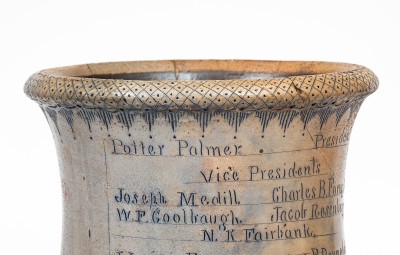 Potter Palmer President
Vice Presidents
Joseph Medill. Charles B.
W.F. Coolbaugh. Jacob
N.K. Fairbank.